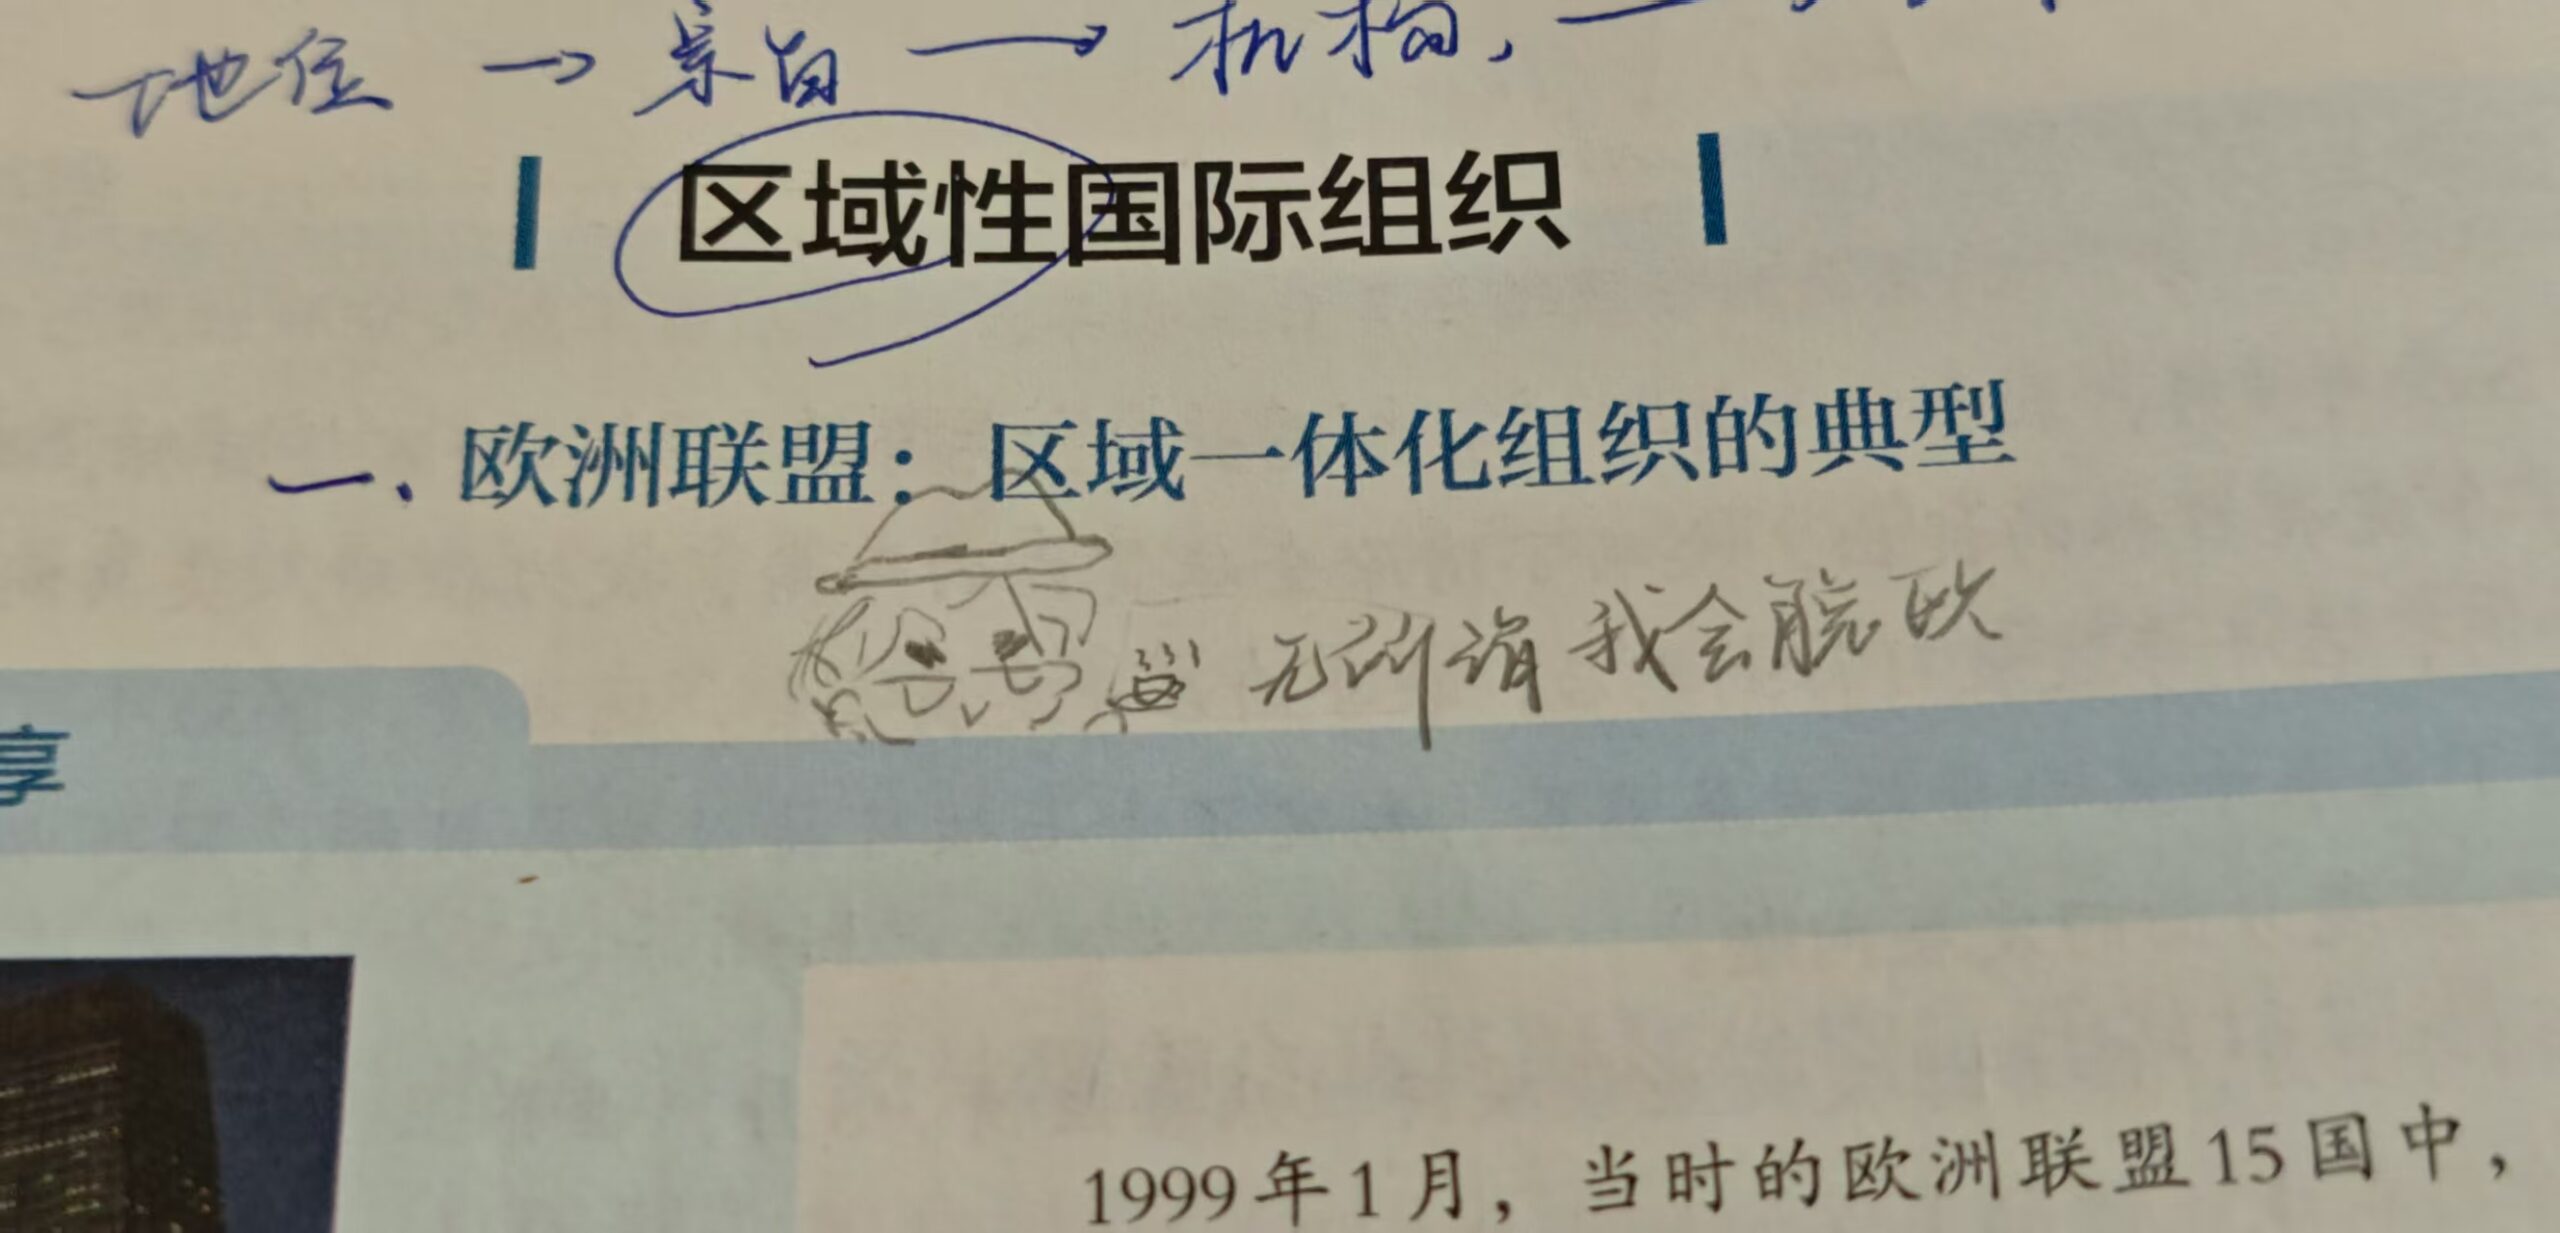 地位 → 宗旨 → 机构,
区域性国际组织
一、欧洲联盟：区域一体化组织的典型
无所谓 我会脱欧
享
1999年1月，当时的欧洲联盟15国中，